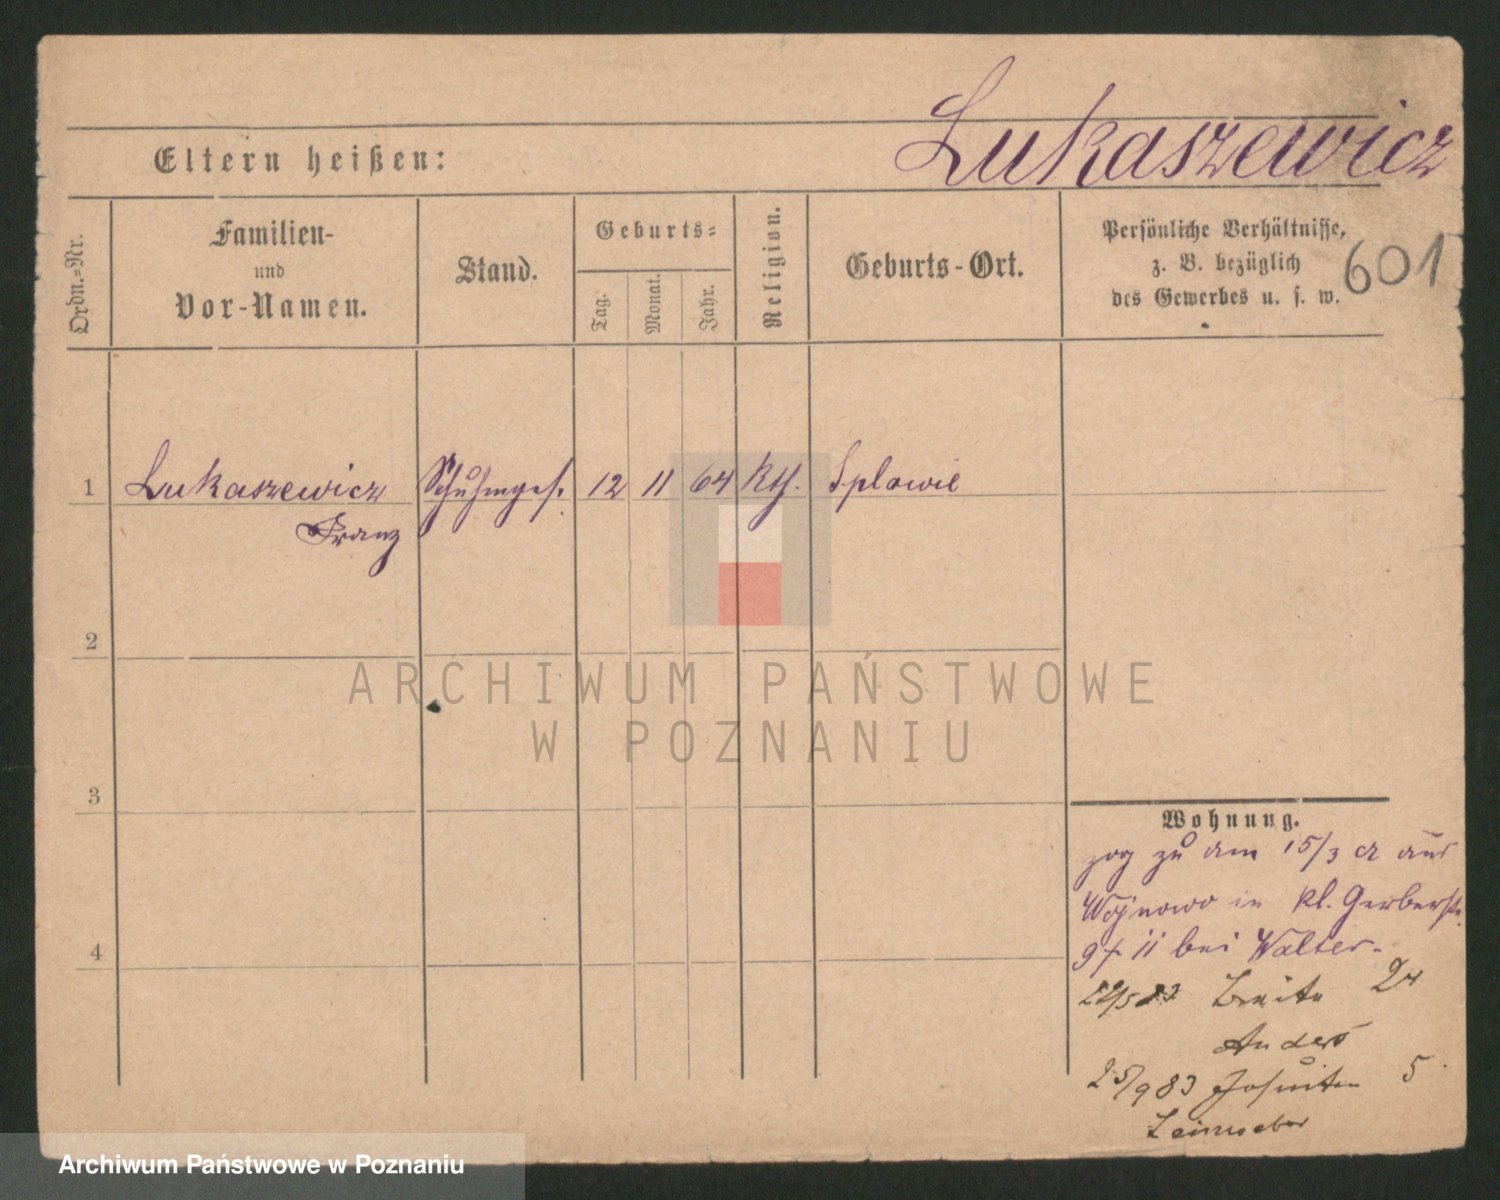 Lukaszewicz
Eltern heißen:
Ordn.=Nr.
Familien-
und
Vor-Namen.
Stand.
Geburts=
Tag.
Monat.
Jahr.
Religion.
Geburts-Ort.
Persönliche Verhältnisse,
z. B. bezüglich
des Gewerbes u. s. w.
601
1 Lukaszewicz Schuhmges. 12 11 64 kth. Splawie
Franz
2
3
4
Wohnung.
zog zu am 15/3 cr aus
Wojnowo in kl. Gerberstr.
9 11 bei Walter.
22/5 83 Breite 24
Anders
25/9 83 Jesuiten 5
ARCHIWUM PAŃSTWOWE
W POZNANIU
Archiwum Państwowe w Poznaniu